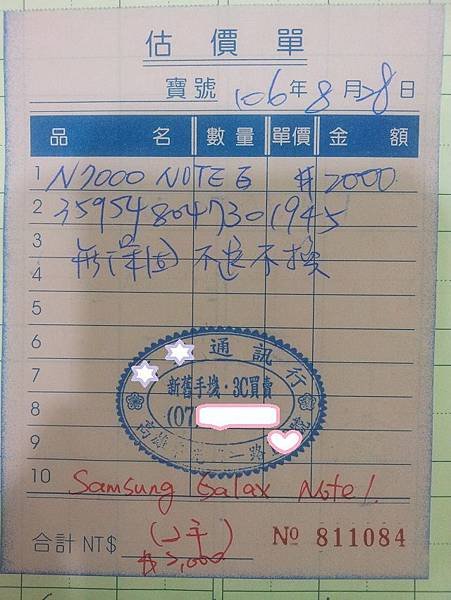 估價單
寶號 106年8月28日
品名 數量 單價 金額
1 N7000 NOTE 白 $2000
2 359548047301945
3 無保固 不退不換
4
5
6
通訊行
7 新舊手機·3C買賣
8 (07
高雄
9
10 Samsung Galax Note 1
(2手)
合計 NT$ $2,000
№ 811084